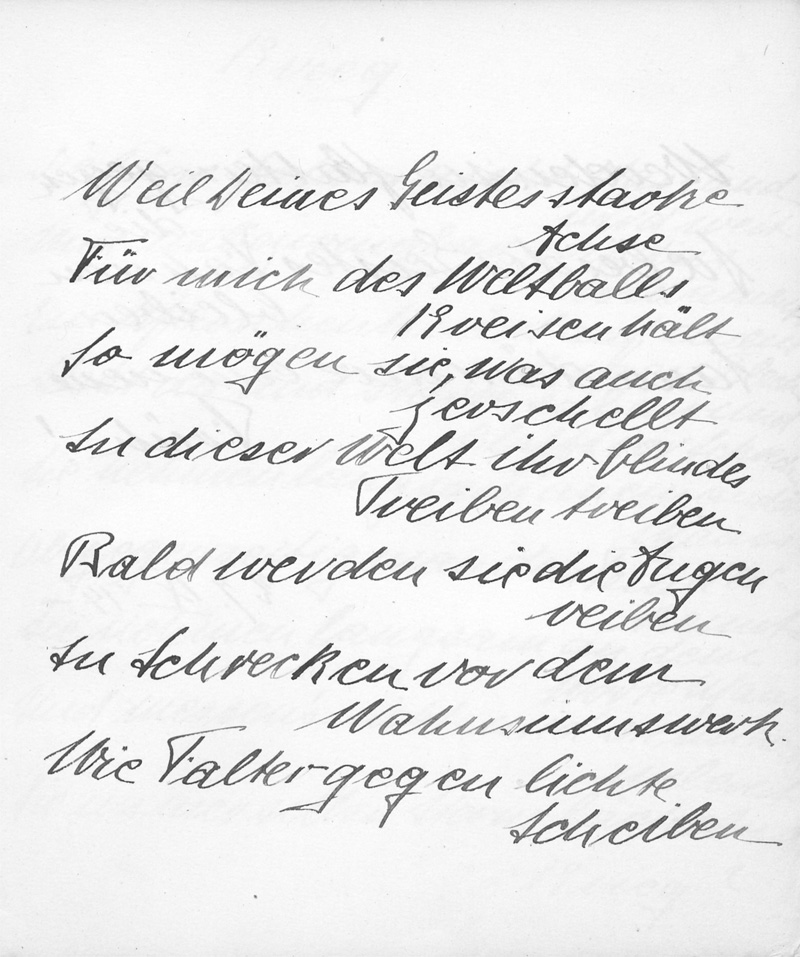 Weil Deines Geistes starke
Achse
Für mich des Weltballs
Kreisen hält
So mögen sie, was auch
zerschellt
In dieser Welt ihr blindes
Treiben treiben
Bald werden sie die Augen
reiben
In Schrecken vor dem
Wahnsinnswerk.
Wie Falter gegen lichte
Scheiben